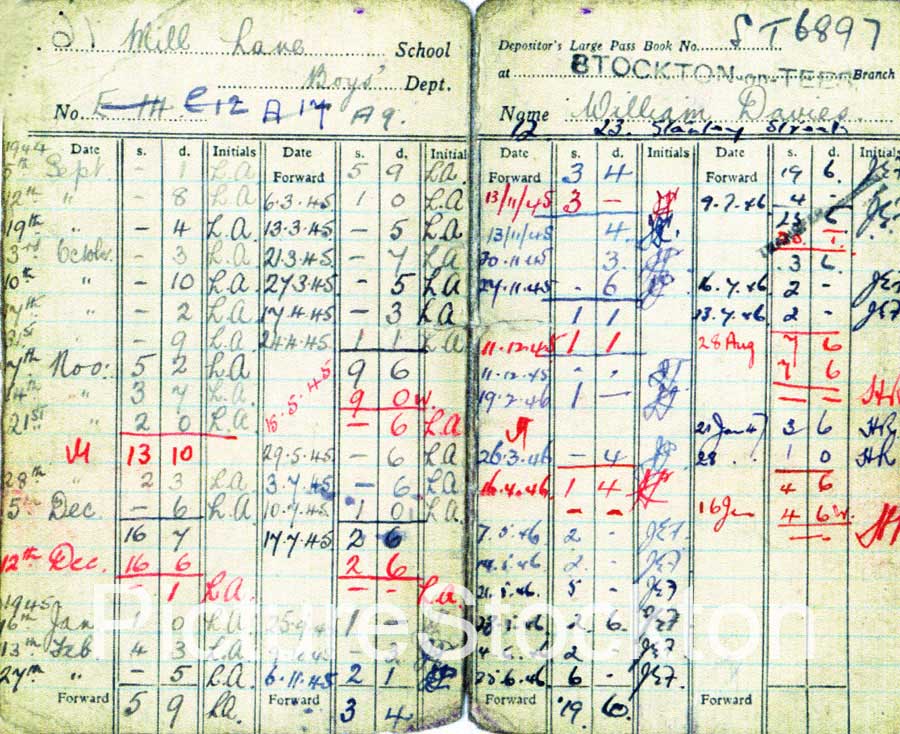 21 Mill Lane School
Boys' Dept.
No. E 14 E12 A 17 A9.
Date s. d. Initials Date s. d. Initial
1944 Forward 5 9 L.A.
5th Sept. - L.A.
12th " - 8 L.A. 6.3.45 1 0 L.A.
19th " - 4 L.A. 13.3.45 - 5 L.A.
3rd October - 3 L.A. 21.3.45 - 7 L.A.
10th " - 10 L.A. 27.3.45 - 5 L.A.
17th " - 2 L.A. 17.4.45 - 3 L.A.
31st " - 9 L.A. 24.4.45 1 1 L.A.
7th Nov: 5 2 L.A. 9 6
14th " 3 7 L.A. 15.5.45 9 0 W.
21st " 2 0 L.A. - 6 L.A.
M 13 10 29.5.45 - 6 L.A.
28th " 2 3 L.A. 3.7.45 - 6 L.A.
5th Dec - 6 L.A. 10.7.45 1 0 L.A.
16 7 17.7.45 2 6
12th Dec. 16 6 2 6
- 1 L.A. - - L.A.
1945
16th Jan 1 0 L.A. 25.9.45 1 -
13th Feb 4 3 L.A.
27th " - 5 L.A. 6.11.45 2 1
Forward 5 9 L.A. Forward 3 4
Depositor's Large Pass Book No. ST6897
at STOCKTON-ON-TEES Branch
Name William Davies
12 23. Stanley Street
Date s. d. Initials Date s. d. Initials
Forward 3 4 Forward 19 6 JEF
13/11/45 3 - 9.7.46 4 - JEF
13/11/45 4
20.11.45 3 3 6
27.11.45 - 6 16.7.46 2 - JEF
1 1 23.7.46 2 - JEF
11.12.45 1 1 28 Aug 7 6
11.12.45 - - 7 6
19.2.46 1 - - - HR
M 21 Jan 47 3 6 HR
26.3.46 - 4 28 . . 1 0 HR
16.4.46 1 4 4 6
- - 16 Jun 4 6 W.
7.5.46 2 - JEF
14.5.46 2 - JEF
21.5.46 5 - JEF
28.5.46 2 6 JEF
2 JEF
25.6.46 6 - JEF
Forward 19 6 Forward
PictureStockton